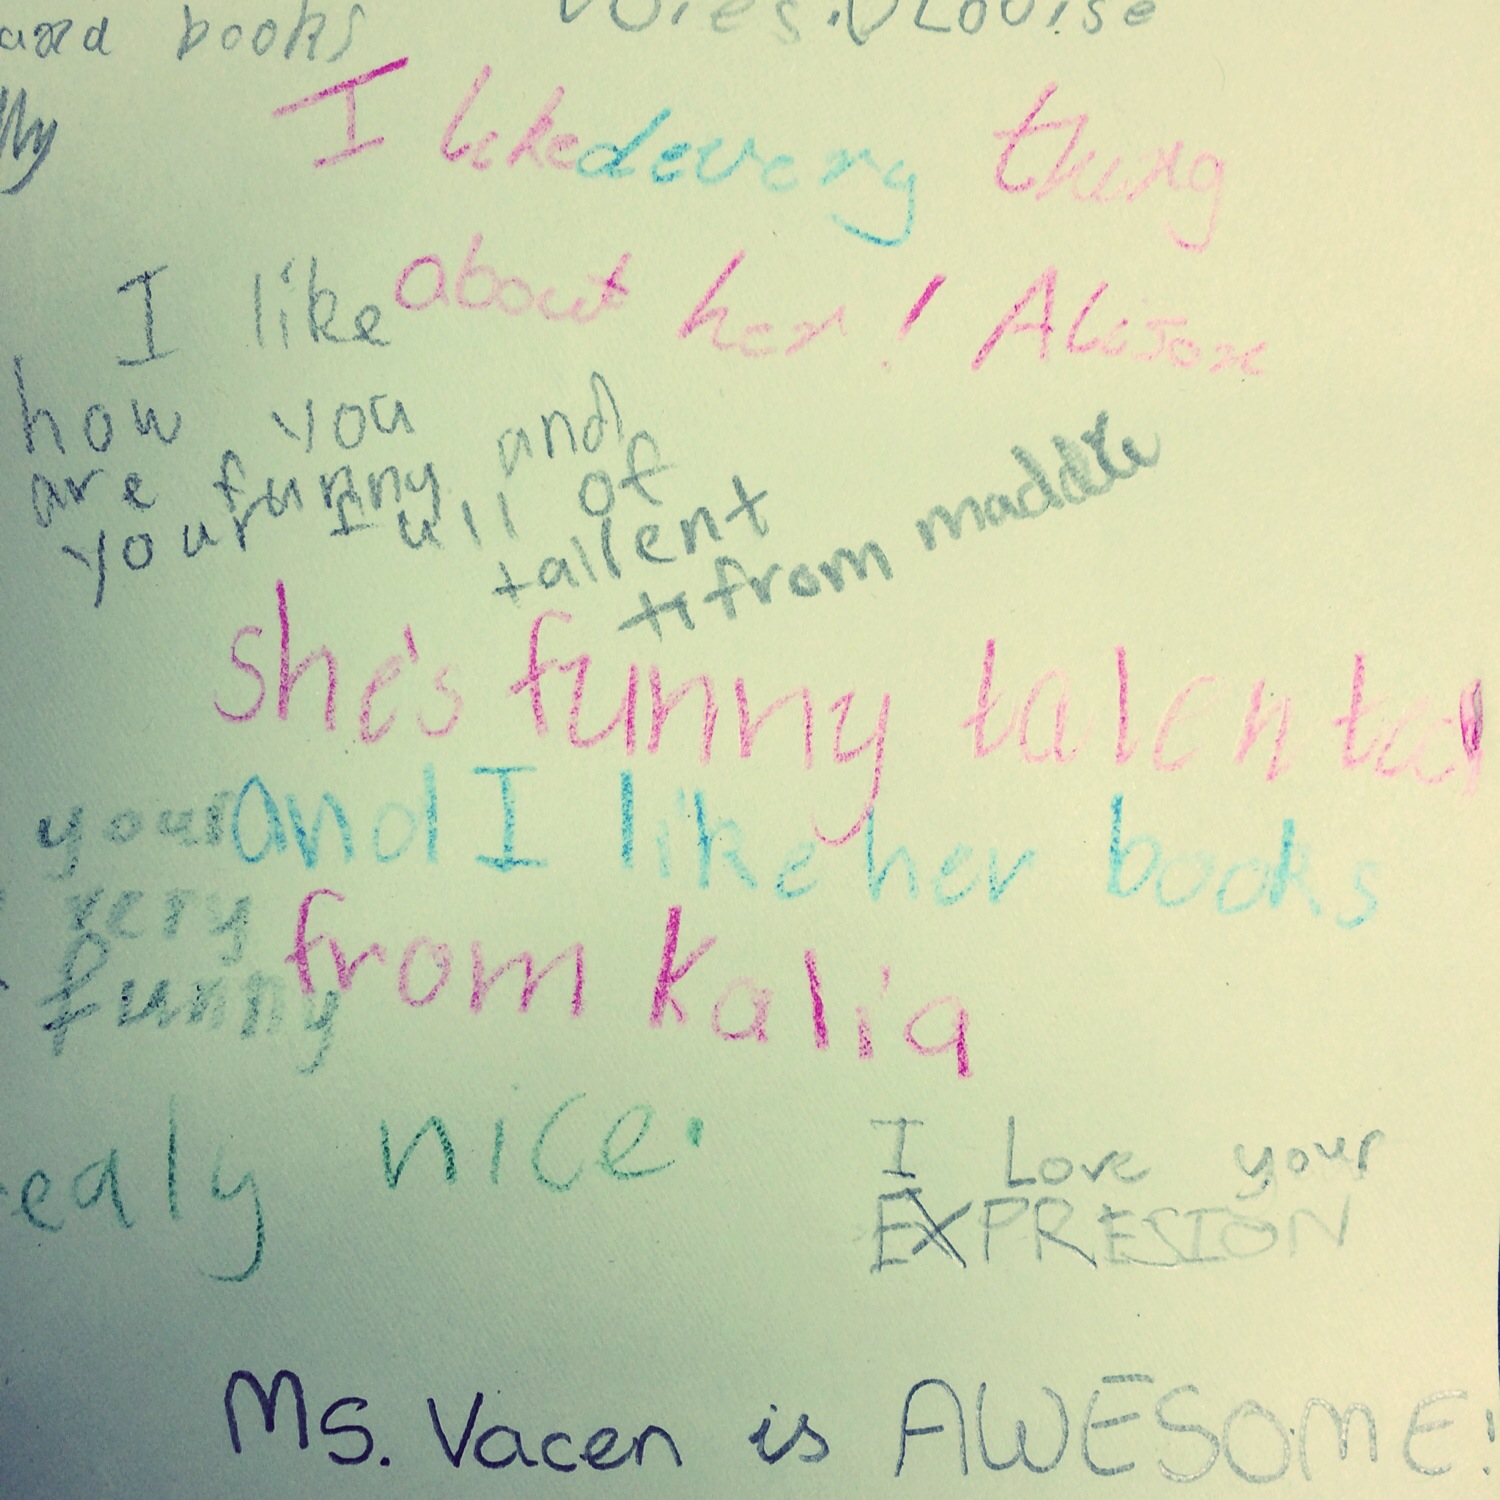 and books
Louise
I liked every thing
about her! Alison
I like
how you
are funny and
your full of
tallent
from maddie
she's funny talented
and I like her books
from kalia
your
very
funny
realy nice.
I Love your
EXPRESION
Ms. Vacen is AWESOME!